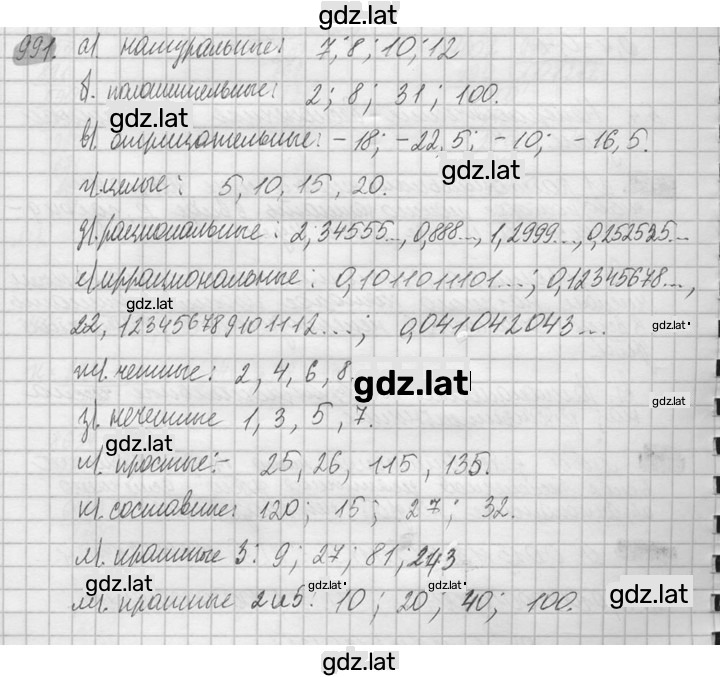 gdz.lat
991. а). натуральные: 7; 8; 10; 12
б). положительные: 2; 8; 31; 100.
gdz.lat
в). отрицательные: -18; -22,5; -10; -16,5.
gdz.lat
г). целые: 5, 10, 15, 20.
д). рациональные: 2,34555..., 0,888..., 1,2999..., 0,252525...
е) иррациональные: 0,1011011101...; 0,12345678...,
gdz.lat
22,123456789101112...; 0,041042043...
gdz.lat
ж). четные: 2, 4, 6, 8.
gdz.lat
gdz.lat
з). нечетные 1, 3, 5, 7.
gdz.lat
и). простые:- 25, 26, 115, 135.
к). составные: 120; 15; 27; 32.
л). кратные 3: 9; 27; 81; 243
gdz.lat gdz.lat gdz.lat gdz.lat
м). кратные 2 и 5: 10; 20; 40; 100.
gdz.lat